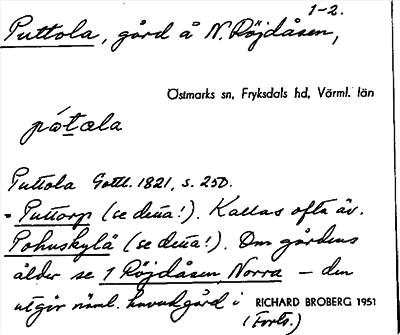 1-2.
Puttola, gård å N. Röjdåsen,
Östmarks sn, Fryksdals hd, Värml. län
pútala
Puttola Gottl. 1821, s. 250.
= Puttorp (se detta!). Kallas ofta äv.
Pohuskylä (se detta!). Om gårdens
ålder se 1 Röjdåsen, Norra – den
utgör näml. huvudgård i RICHARD BROBERG 1951
(Forts.)